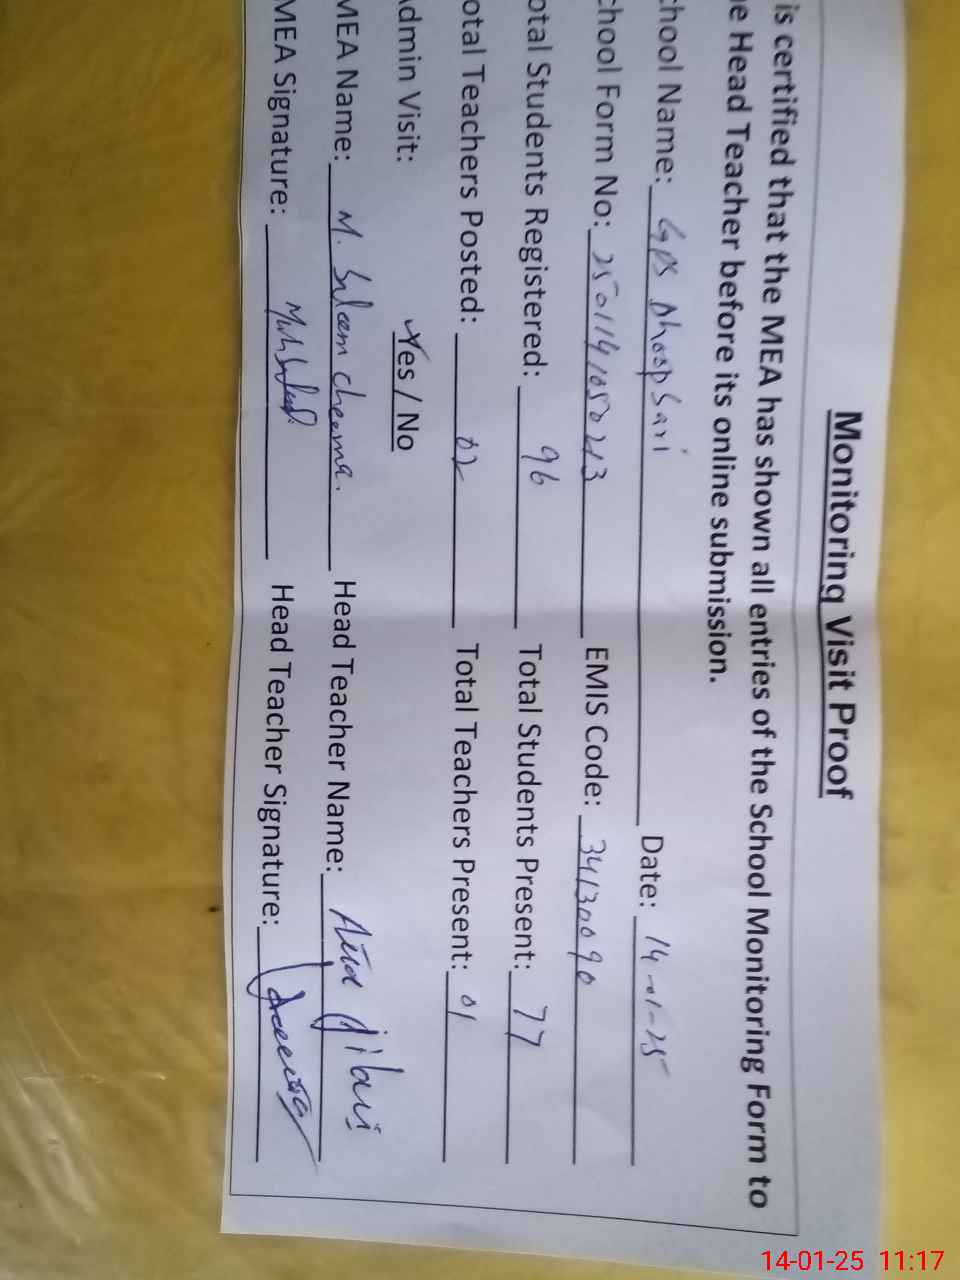 Monitoring Visit Proof
is certified that the MEA has shown all entries of the School Monitoring Form to
e Head Teacher before its online submission.
chool Name: GPS Dhoop Sari Date: 14-01-25
chool Form No: 2501141050213 EMIS Code: 34130090
otal Students Registered: 96 Total Students Present: 77
otal Teachers Posted: 02 Total Teachers Present: 01
dmin Visit: Yes / No
MEA Name: M. Saleem cheema. Head Teacher Name:
MEA Signature: Head Teacher Signature:
14-01-25 11:17